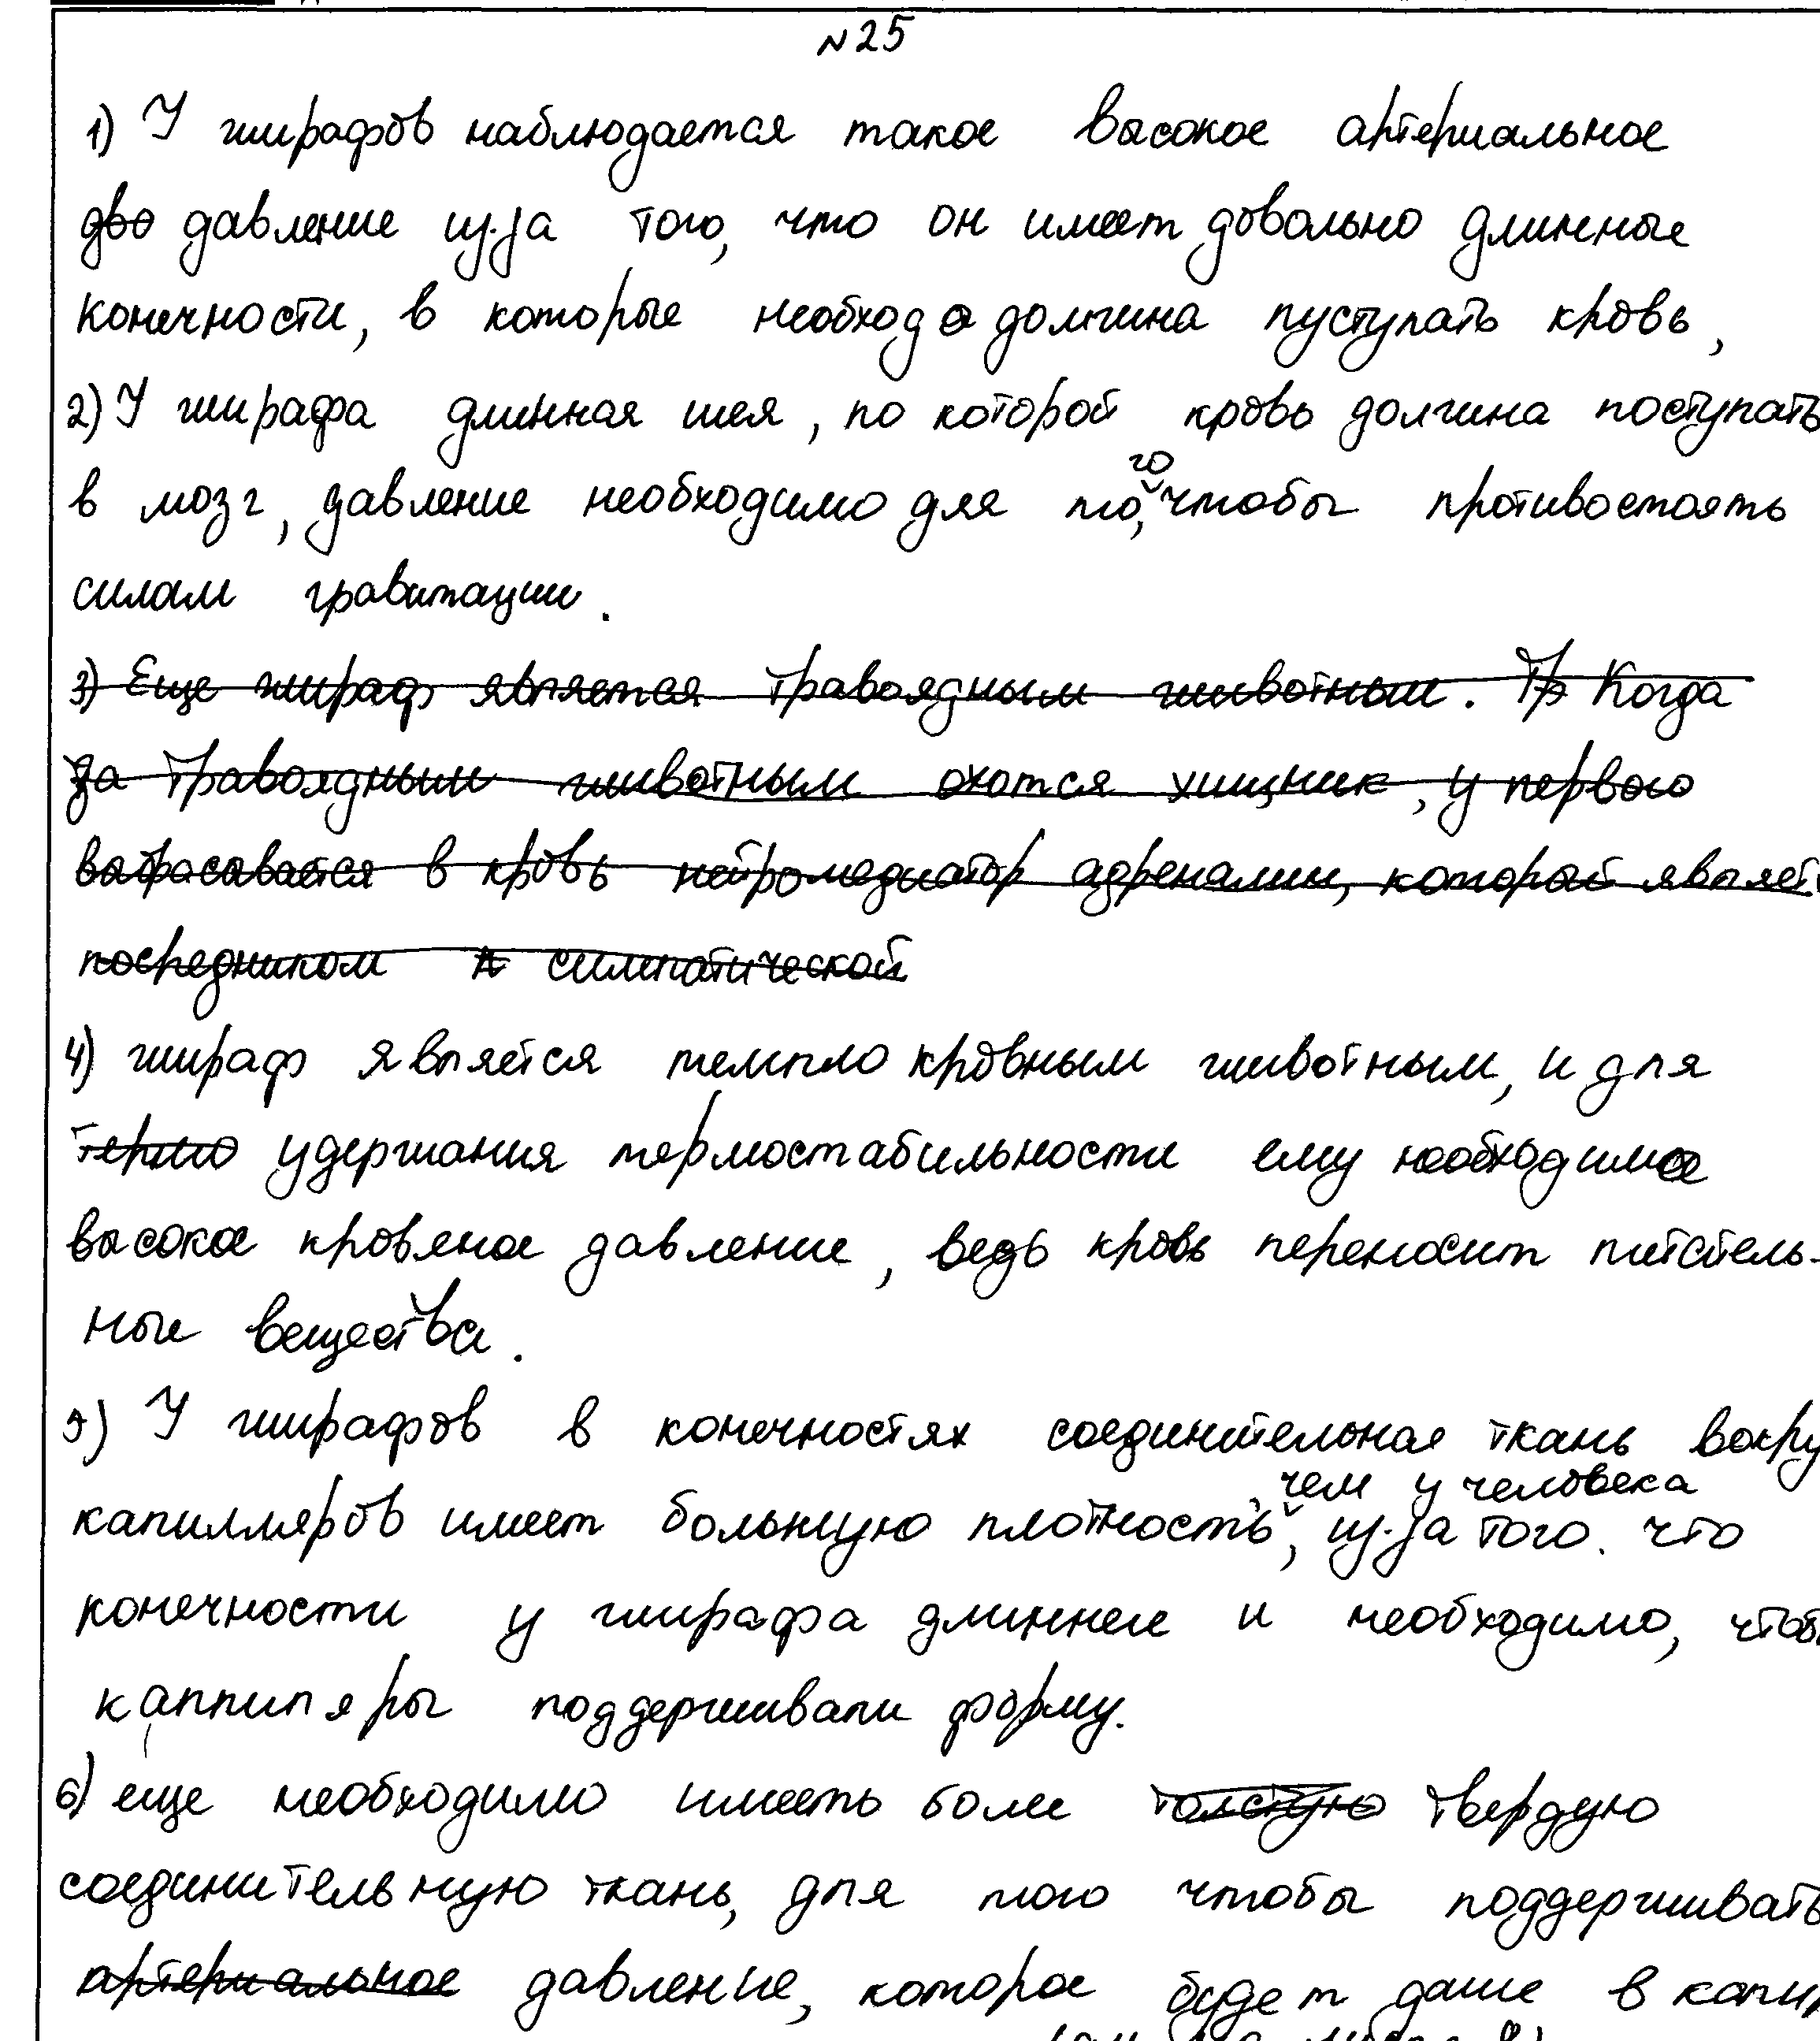 №25
1) У жирафов наблюдается такое высокое артериальное
дво давление из-за того, что он имеет довольно длинные
конечности, в которые необход должна пуступать кровь,
2) У жирафа длинная шея, по которой кровь должна поступать
го
в мозг, давление необходимо для то, чтобы противостоять
силам гравитации.
3) Еще жираф является травоядным животным. Тр Когда
за травоядным животным охотся хищник, у первого
выбрасывается в кровь нейромедиатор адреналин, который являет
посредником симпатической
4) жираф является темпло кровным животным, и для
термо удержания термостабильности ему необходимо
высокое кровяное давление, ведь кровь переносит питатель-
ные вещества.
5) У жирафов в конечностях соединительная ткань вокру
чем у человека
капилляров имеет большую плотность, из-за того. что
конечности у жирафа длиннее и необходимо, чтоб
каппиляры поддерживали форму.
6) еще необходимо иметь более толстую твердую
соединительную ткань, для того чтобы поддерживать
артериальное давление, которое будет даже в капи